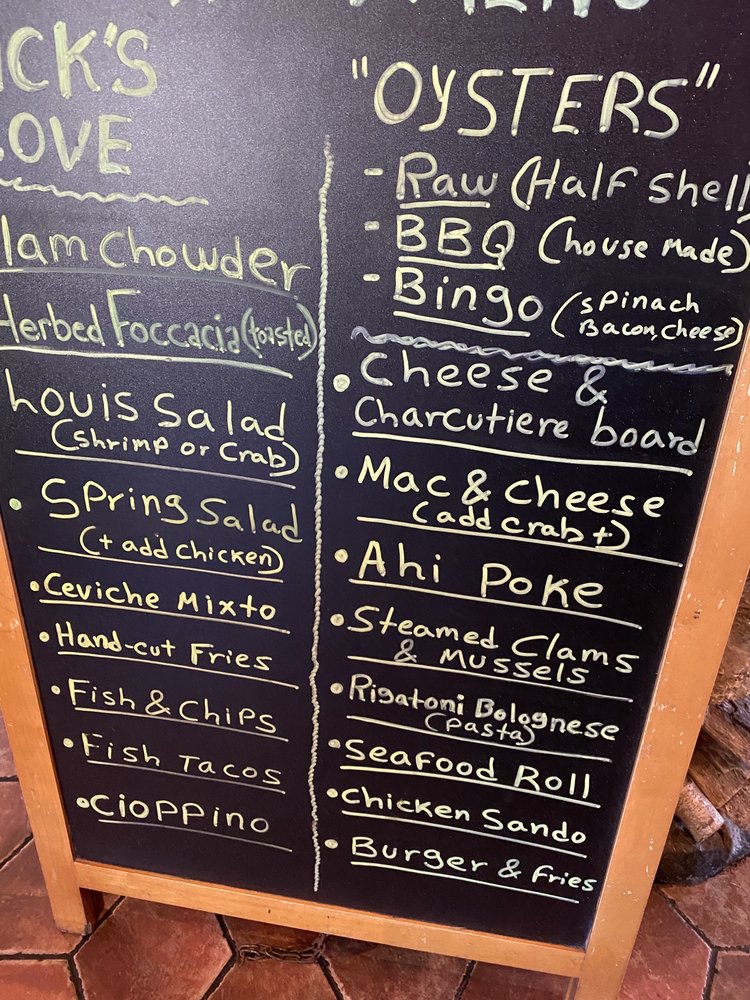 ICK'S
LOVE
lam Chowder
Herbed Foccacia (toasted)
Louis Salad
(shrimp or Crab)
• Spring Salad
(+ add chicken)
• Ceviche Mixto
• Hand-cut Fries
• Fish & Chips
• Fish Tacos
• Cioppino
"OYSTERS"
- Raw (Half Shell)
- BBQ (house Made)
- Bingo (spinach
Bacon, cheese)
• Cheese &
Charcutiere board
• Mac & Cheese
(add crab +)
• Ahi Poke
• Steamed Clams
& Mussels
• Rigatoni Bolognese
(pasta)
• Seafood Roll
• Chicken Sando
• Burger & fries